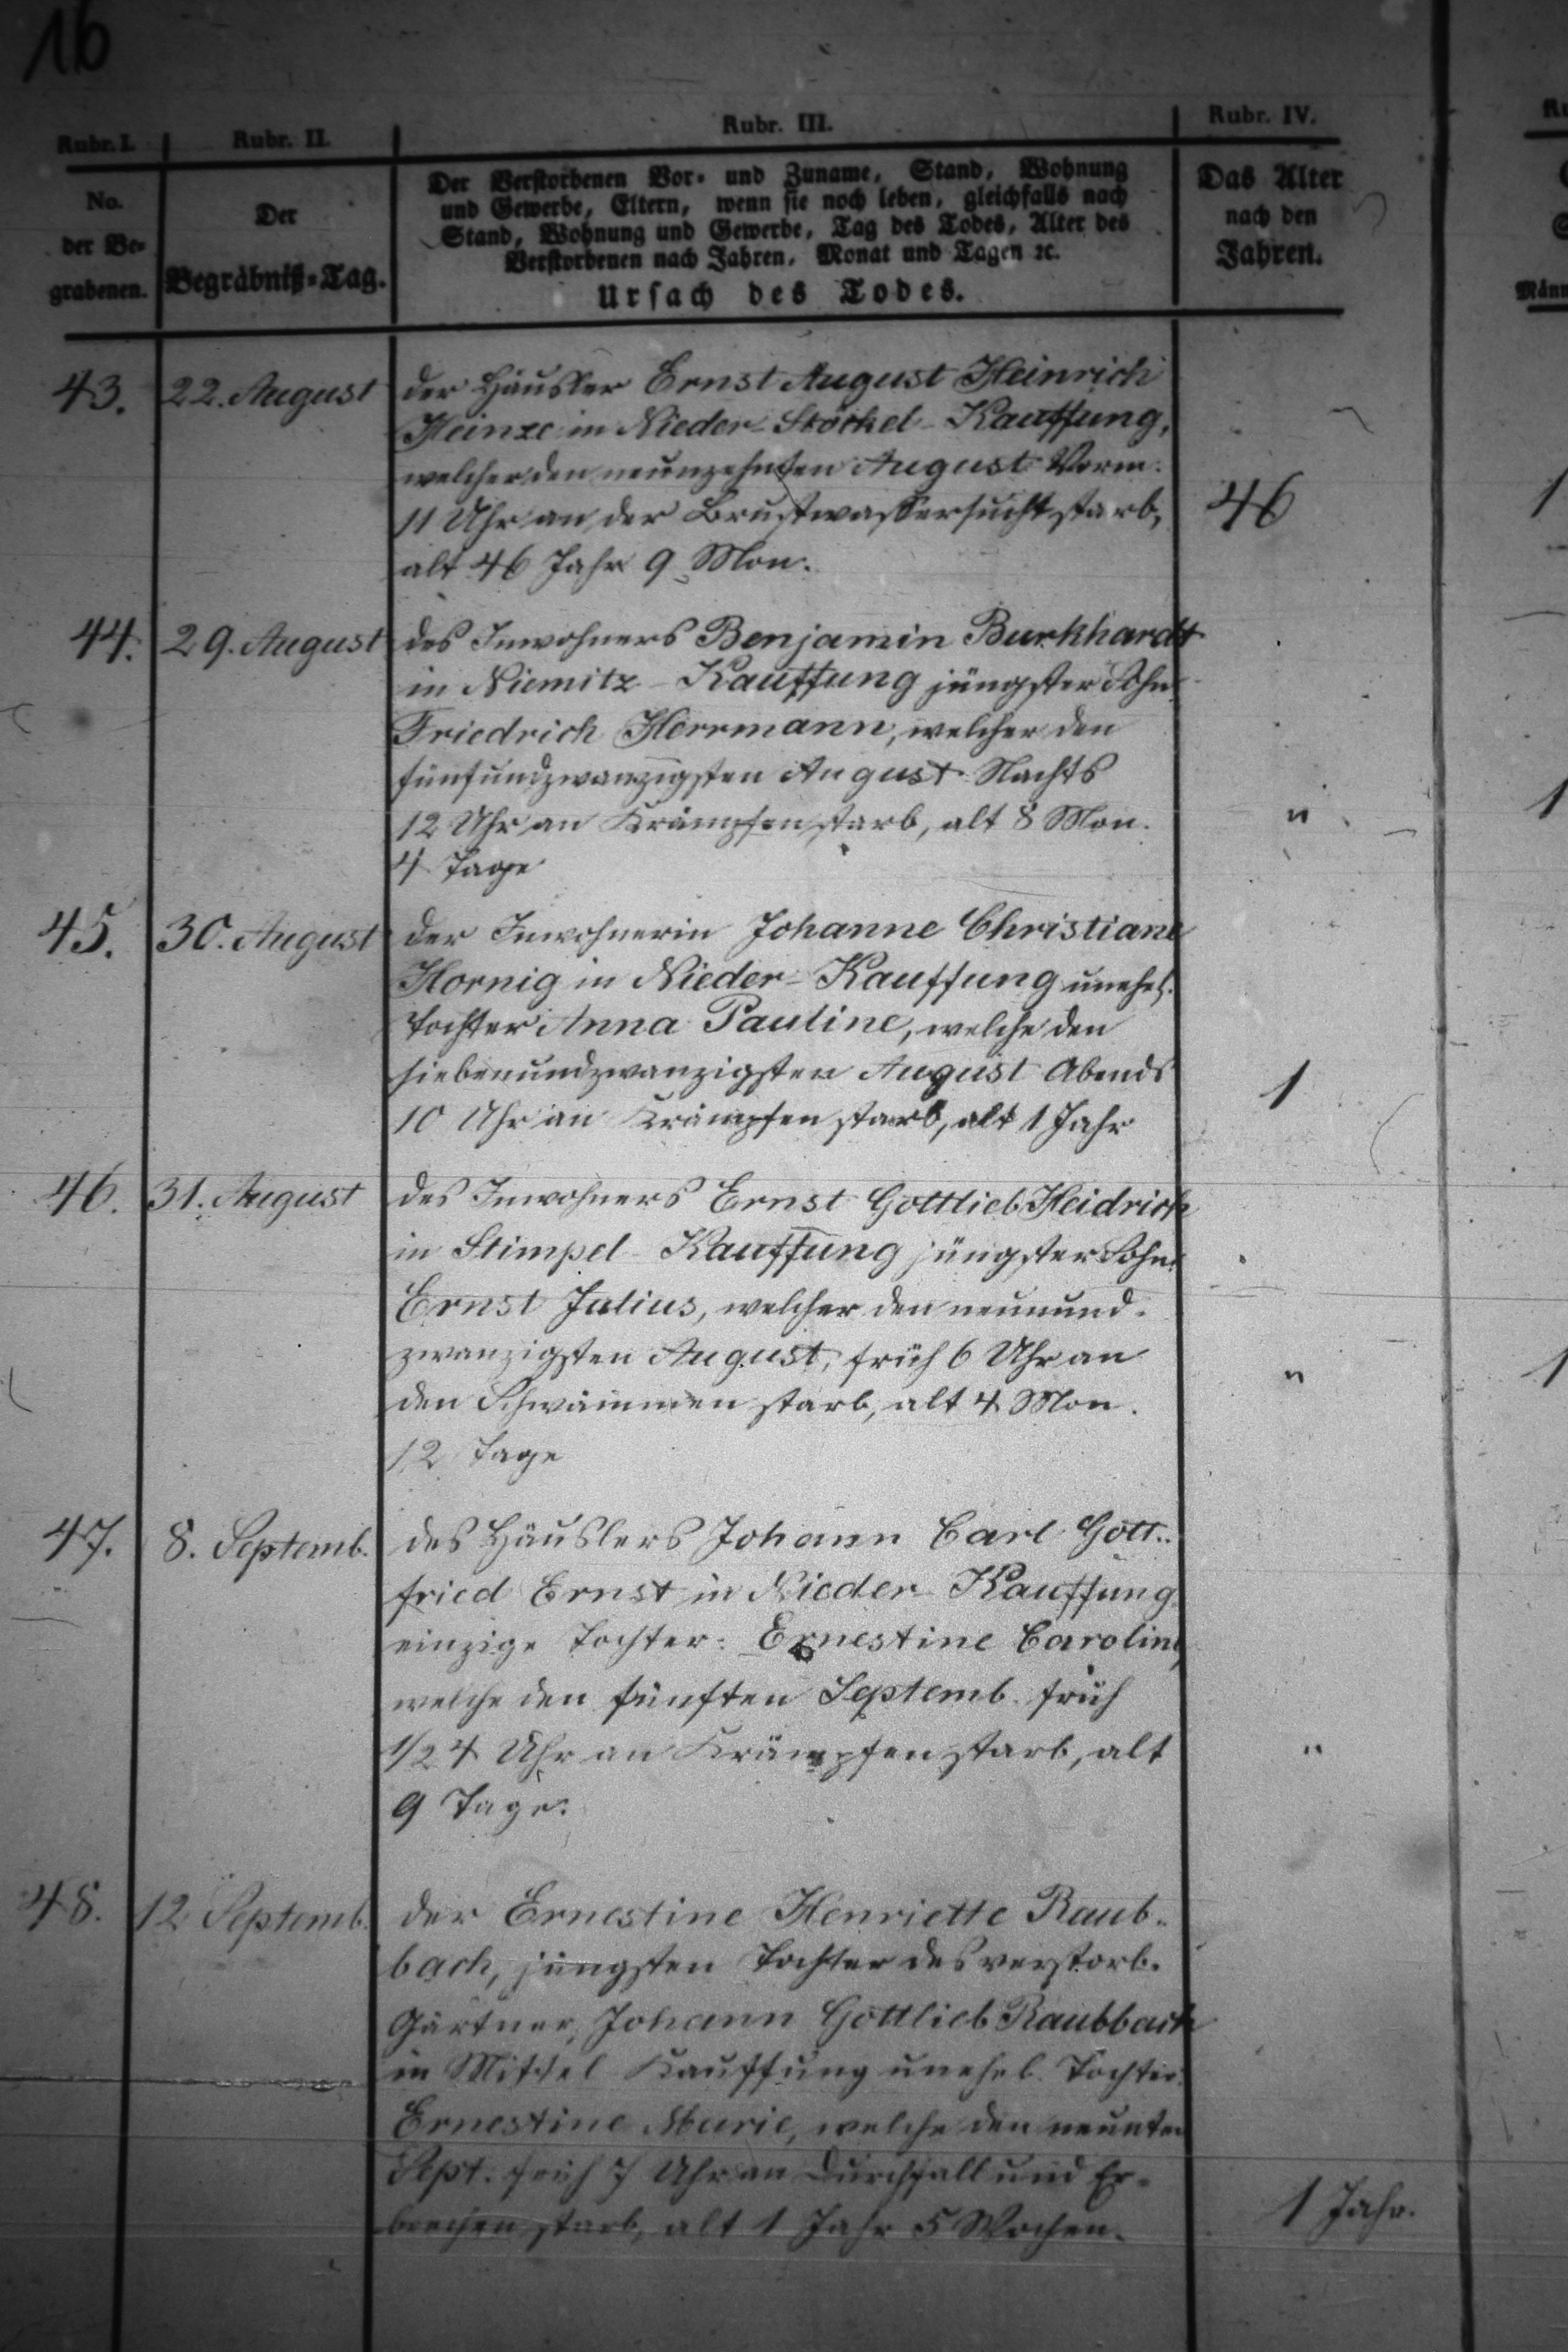 16
Rubr. I. Rubr. II. Rubr. III. Rubr. IV.
No.
der Be-
grabenen.
Der
Begräbniß-Tag.
Der Verstorbenen Vor- und Zuname, Stand, Wohnung
und Gewerbe, Eltern, wenn sie noch leben, gleichfalls nach
Stand, Wohnung und Gewerbe, Tag des Todes, Alter des
Verstorbenen nach Jahren, Monat und Tagen ꝛc.
Ursach des Todes.
Das Alter
nach den
Jahren.
Männ
43. 22. August der Häusler Ernst August Heinrich
Heinze in Nieder-Stöckel-Kauffung,
welcher den neunzehnten August Vorm.
11 Uhr an der Brustwassersucht starb, 46 1
alt 46 Jahr 9 Mon.
44. 29. August des Inwohners Benjamin Burkhardt
in Niemitz-Kauffung jüngster Sohn
Friedrich Herrmann, welcher den
fünfundzwanzigsten August Nachts
12 Uhr an Krämpfen starb, alt 8 Mon. " 1
4 Tage
45. 30. August der Inwohnerin Johanne Christiane
Hornig in Nieder-Kauffung unehel.
Tochter Anna Pauline, welche den
siebenundzwanzigsten August Abends 1
10 Uhr an Krämpfen starb, alt 1 Jahr
46. 31. August des Inwohners Ernst Gottlieb Heidrich
in Stimpel-Kauffung jüngster Sohn:
Ernst Julius, welcher den neunund-
zwanzigsten August, früh 6 Uhr an " 1
den Schwämmen starb, alt 4 Mon.
12 Tage
47. 8. Septemb. des Häuslers Johann Carl Gott-
fried Ernst in Nieder-Kauffung
einzige Tochter: Ernestine Caroline,
welche den fünften Septemb. früh
1/2 4 Uhr an Krämpfen starb, alt "
9 Tage.
48. 12 Septemb. der Ernestine Henriette Raub-
bach, jüngsten Tochter des verstorb.
Gärtner, Johann Gottlieb Raubbach
in Mittel Kauffung unehel. Tochter
Ernestine Marie, welche den neunten
Sept. früh 7 Uhr an Durchfall und Er-
brechen starb, alt 1 Jahr 5 Wochen. 1 Jahr.